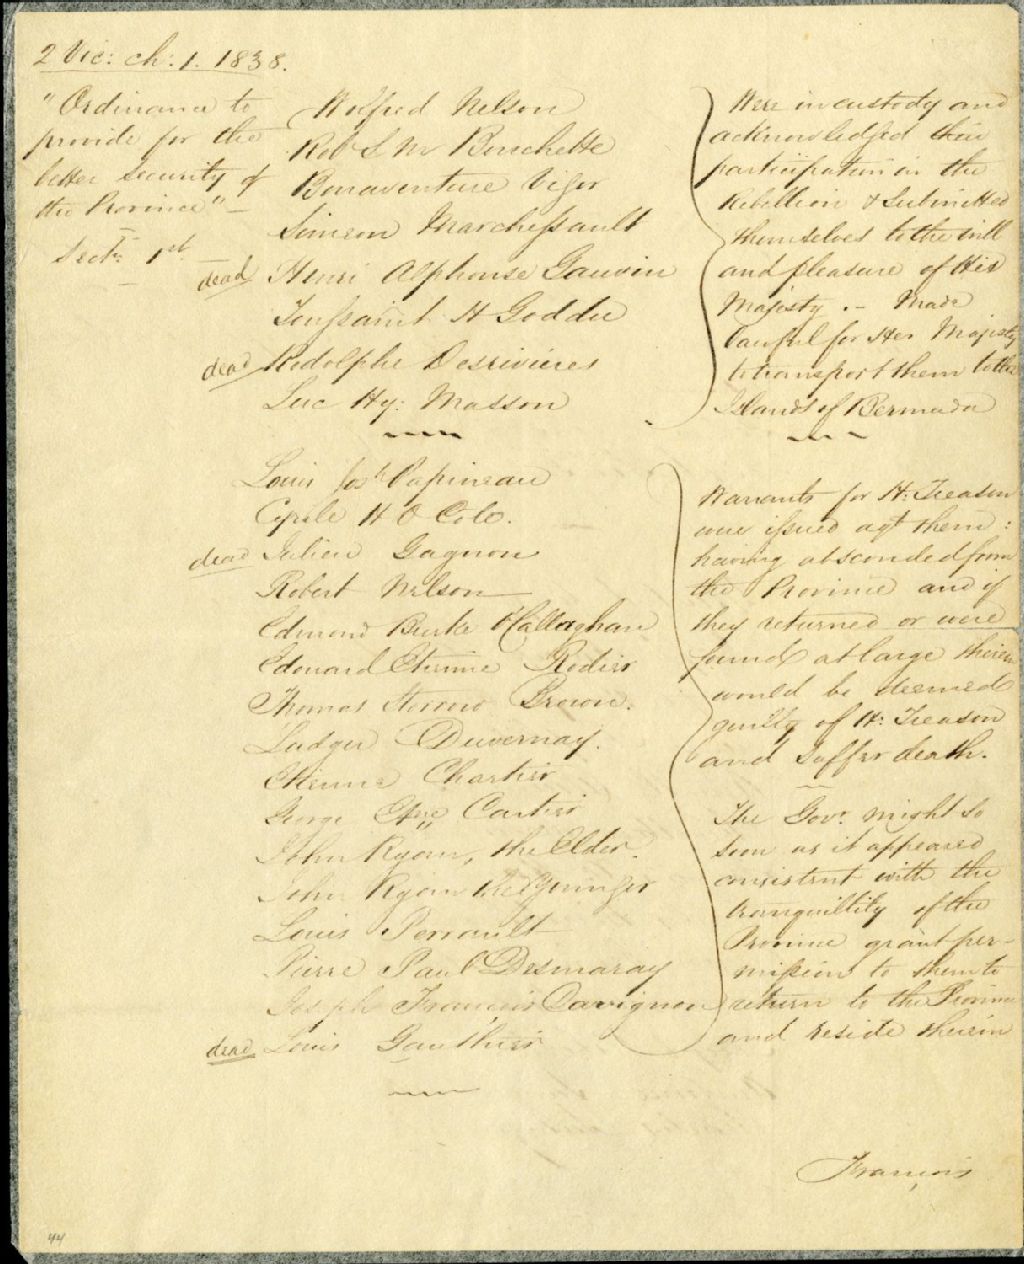 2 Vic: ch: 1. 1838.
"Ordinance to
provide for the
better security of
the Province" -
Sectn. 1st.
Wolfred Nelson
Rob S M Bouchette
Bonaventure Viger
Simeon Marchessault
dead Henri Alphonse Gauvin
Toussaint H Goddu
dead Rodolphe Desrivieres
Luc Hy: Masson
Were in custody and
acknowledged their
participation in the
Rebellion & Submitted
themselves to the will
and pleasure of Her
Majesty . - Made
lawful for Her Majesty
to transport them to the
Islands of Bermuda
Louis Josh Papineau
Cyrile H O Cote.
dead Julien Gagnon
Robert Nelson
Edmond Burke O'Callaghan
Edouard Etienne Rodier
Thomas Storrow Brown.
Ludger Duvernay.
Etienne Chartier
George Etne Cartier
John Ryan, the Elder.
John Ryan the Younger
Louis Perrault
Pierre Paul Desmaray
Joseph Francois Davignon
dead Louis Gauthier
Warrants for H: Treason
were issued agt them :
having absconded from
the Province and if
they returned or were
found at large therein
would be deemed
guilty of H: Treason
and suffer death.
The Govr. might so
soon as it appeared
consistent with the
tranquiltity of the
Province grant per-
mission to them to
return to the Province
and reside therein
François
44